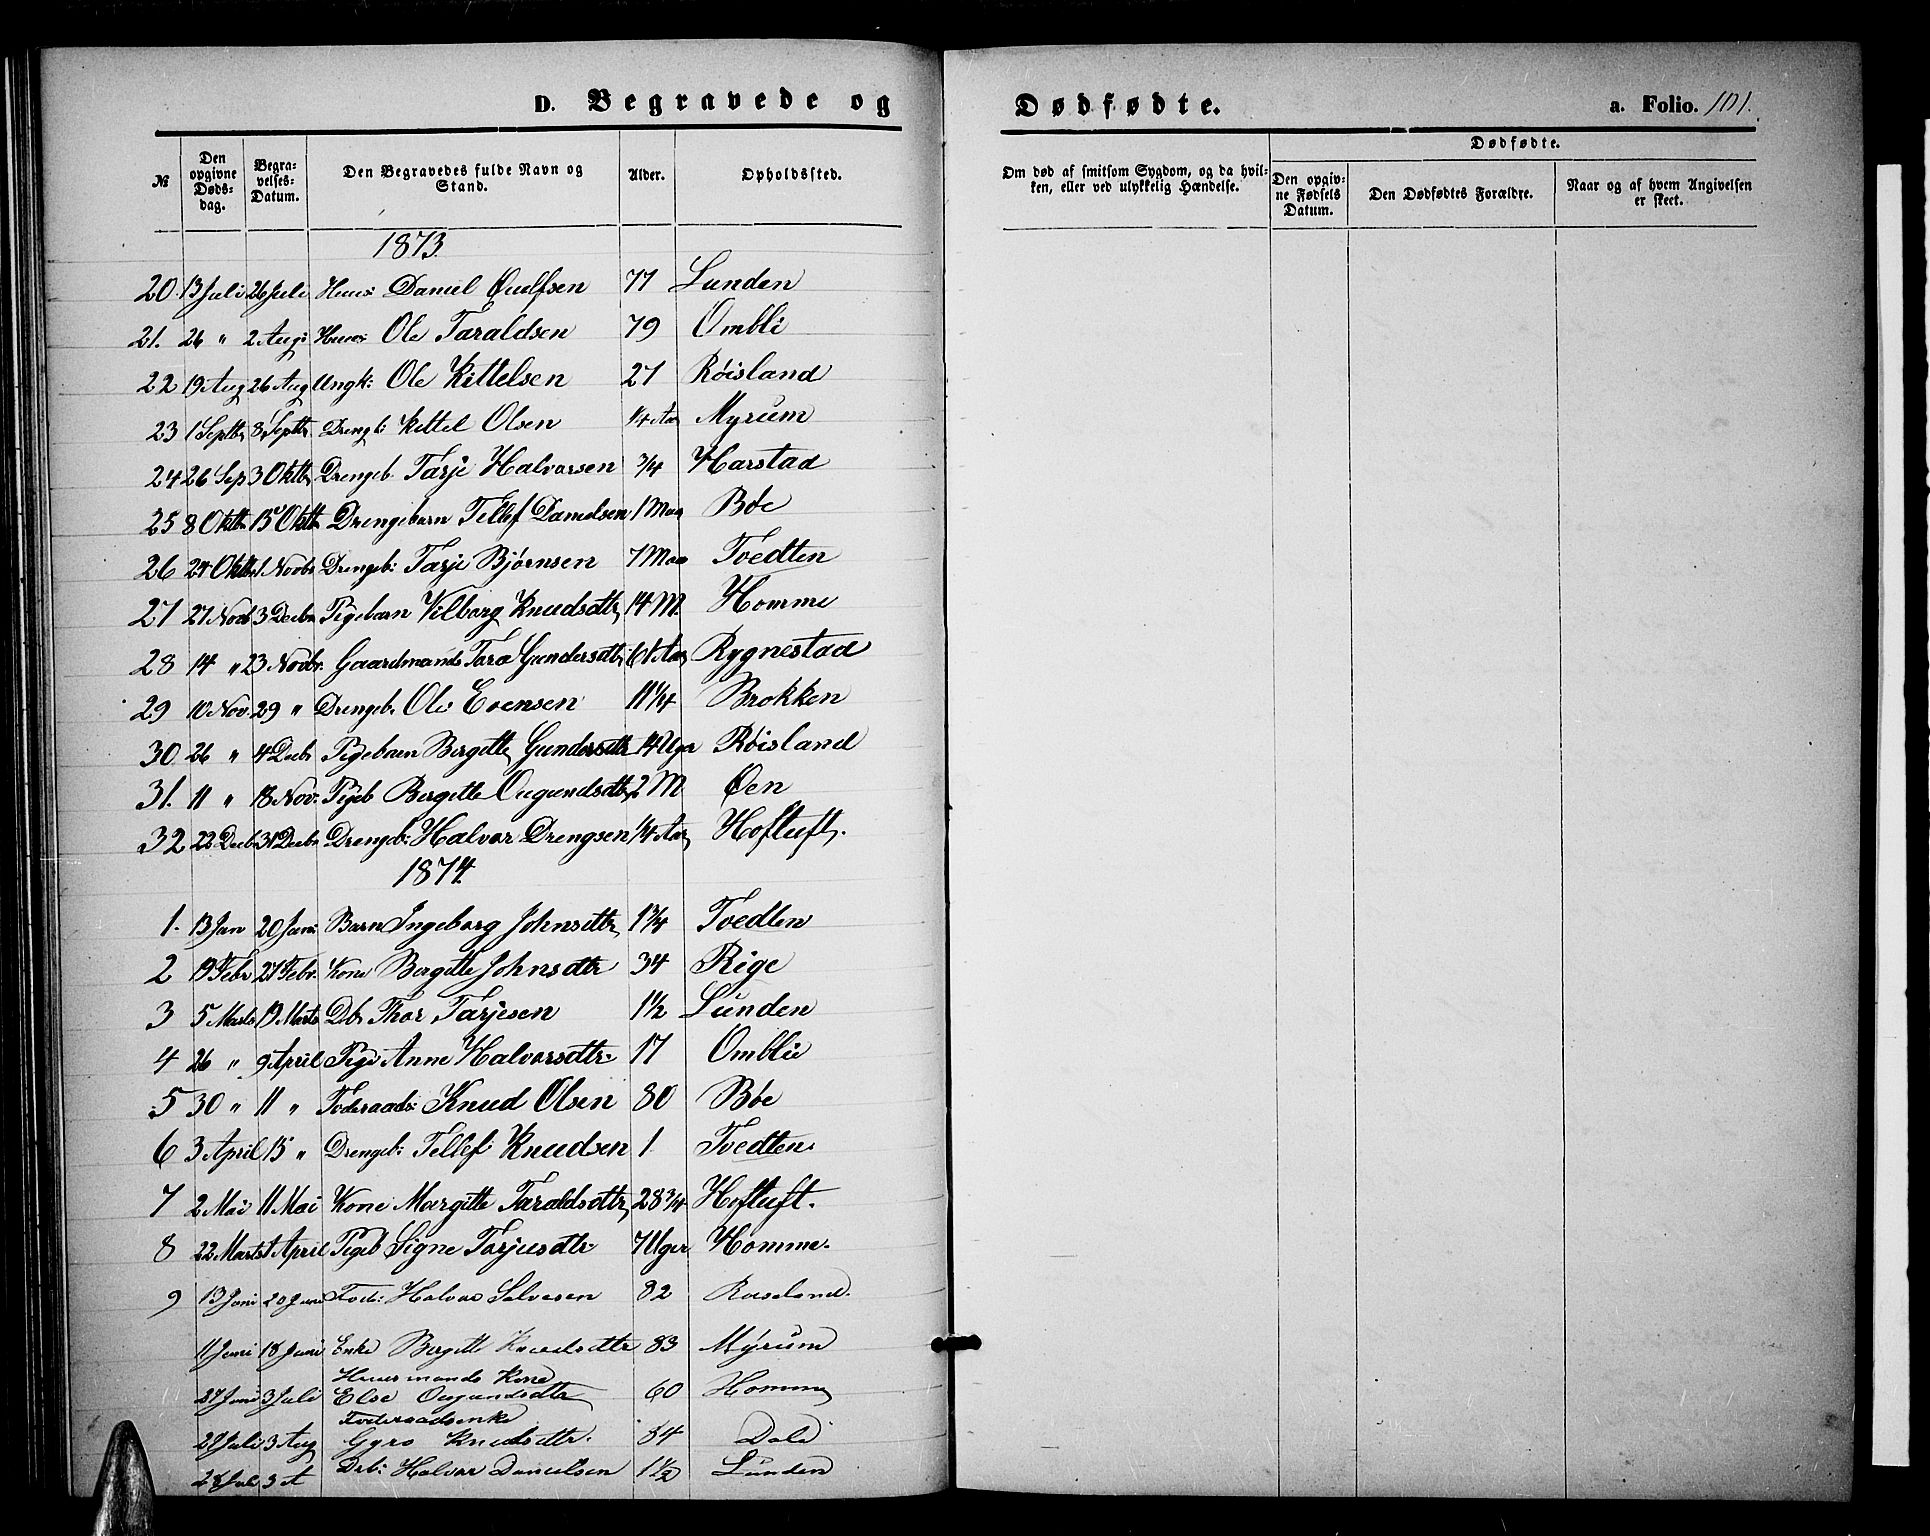 D. Begravede og Dødfødte. a. Folio. 101.
№ Den opgivne Dødsdag. Begravelses-Datum. Den Begravedes fulde Navn og Stand. Alder. Opholdssted. Om død af smitsom Sygdom, og da hvilken, eller ved ulykkelig Hændelse. Dødfødte. Den opgivne Fødsels Datum. Den Dødfødtes Forældre. Naar og af hvem Angivelsen er skeet.
1873.
20. 13 Juli 26 Juli Huus: Daniel Oulfsen 77 Lunden
21. 26 " 2 Aug: Huus: Ole Taraldsen 79 Ombli
22 19 Aug 26 Aug Ungk: Ole Kittelsen 27 Røisland
23 1 Septbr 8 Septbr Drengb: Kittel Olsen 1/4 Aar Myrum
24 26 Sep 3 Oktb Drengeb. Tarje Halvorsen 3/4 Harstad
25 8 Oktbr 15 Oktbr Drengebarn Tellef Danielsen 1 Maa Bøe
26 24 Oktbr 1. Novbr Drengeb: Tarje Bjørnsen 7 Maa Tvedten
27 27 Novb 3 Decbr Pigebarn Vilborg Knudsdtr 14 M. Homme
28 14 " 23 Novbr. Gaardmands Tora Gundersdtr 61 Aar Rygnestad
29 10 Nov. 29 " Drengeb. Ole Evensen 11 1/4 Brokken
30 26 " 4 Decbr Pigebarn Bergitte Gundersdtr 14 Uger Røisland
31. 11 " 18 Nov: Pigeb Bergitte Ougundsdtr 2 M Øen
32 22 Decb 31 Decbr Drengeb: Halvor Drengsen 1/4 Aar Hoftuft.
1874.
1. 13 Jan 20 Jan: Barn Ingeborg Johnsdtr 1 3/4 Tvedten
2 19 Febr 27 Febr. Kone Bergitte Johnsdtr 34 Rige
3 5 Marts 19 Marts Db: Thor Tarjesen 1 1/2 Lunden
4 26 " 9 April Pige Anne Halvorsdtr: 17 Omblie
5 30 " 11 " Foderaads: Knud Olsen 80 Bøe
6 3 April 15 " Drengeb: Tellef Knudsen 1 Tvedten.
7 2 Mai 11 Mai Kone Margitte Taraldsdtr 28 3/4 Hoftuft.
8 22 Marts 1 April Pigeb Signe Tarjusdtr: 7 Uger Homme.
9 13 Juni 20 Juni Foder: Halvor Salvesen 82 Roseland.
11 Juni 18 Juni Enke Bergitte Knudsdtr 83 Myrum
Huusmands Kone
27 Juni 3 Juli Else Ougundsdtr 60 Homme
Foderaadsenke
28 Juli 3 Aug Gyro Knudsdtr. 84 Dale
28 Juli 3 A Drb: Halvor Danielsen 1 1/2 Lunden